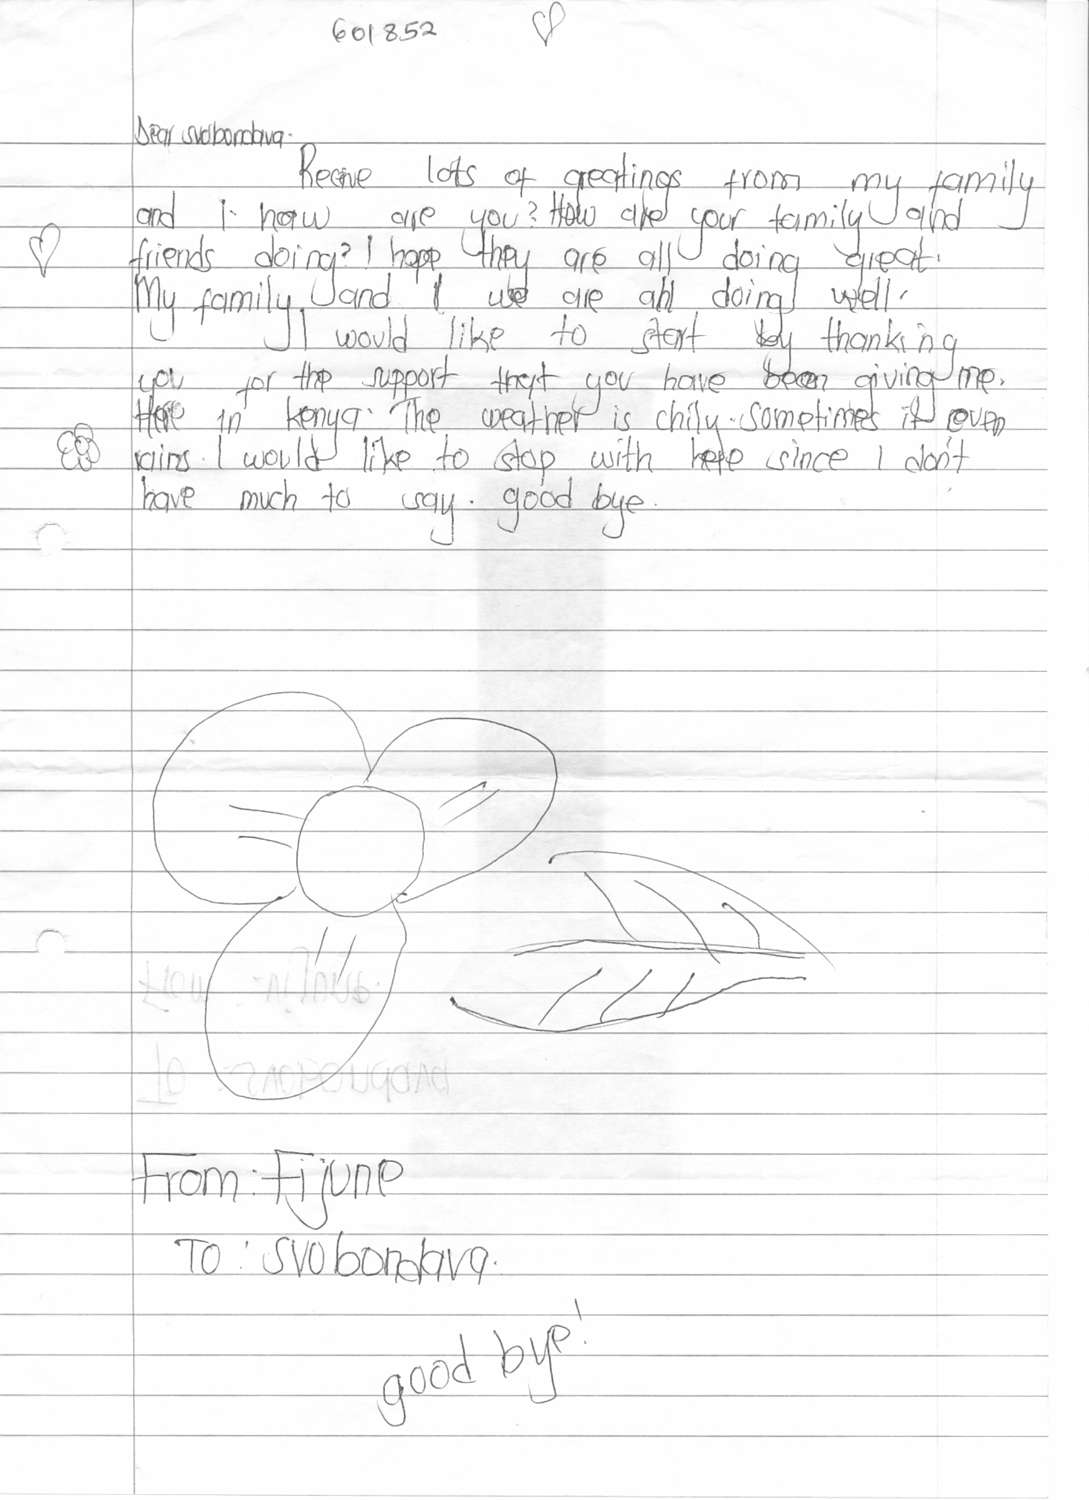 601852
Dear svobondava.
Recive lots of greatings from my family
and I. how are you? How are your family and
friends doing? I hope they are all doing great.
My family and I we are all doing well.
I would like to start by thanking
you for the support that you have been giving me.
Here in kenya. The weather is chily. sometimes it even
rains. I would like to stop with here since I don't
have much to say. good bye.
From: Fijune
To: svobondava.
good bye!